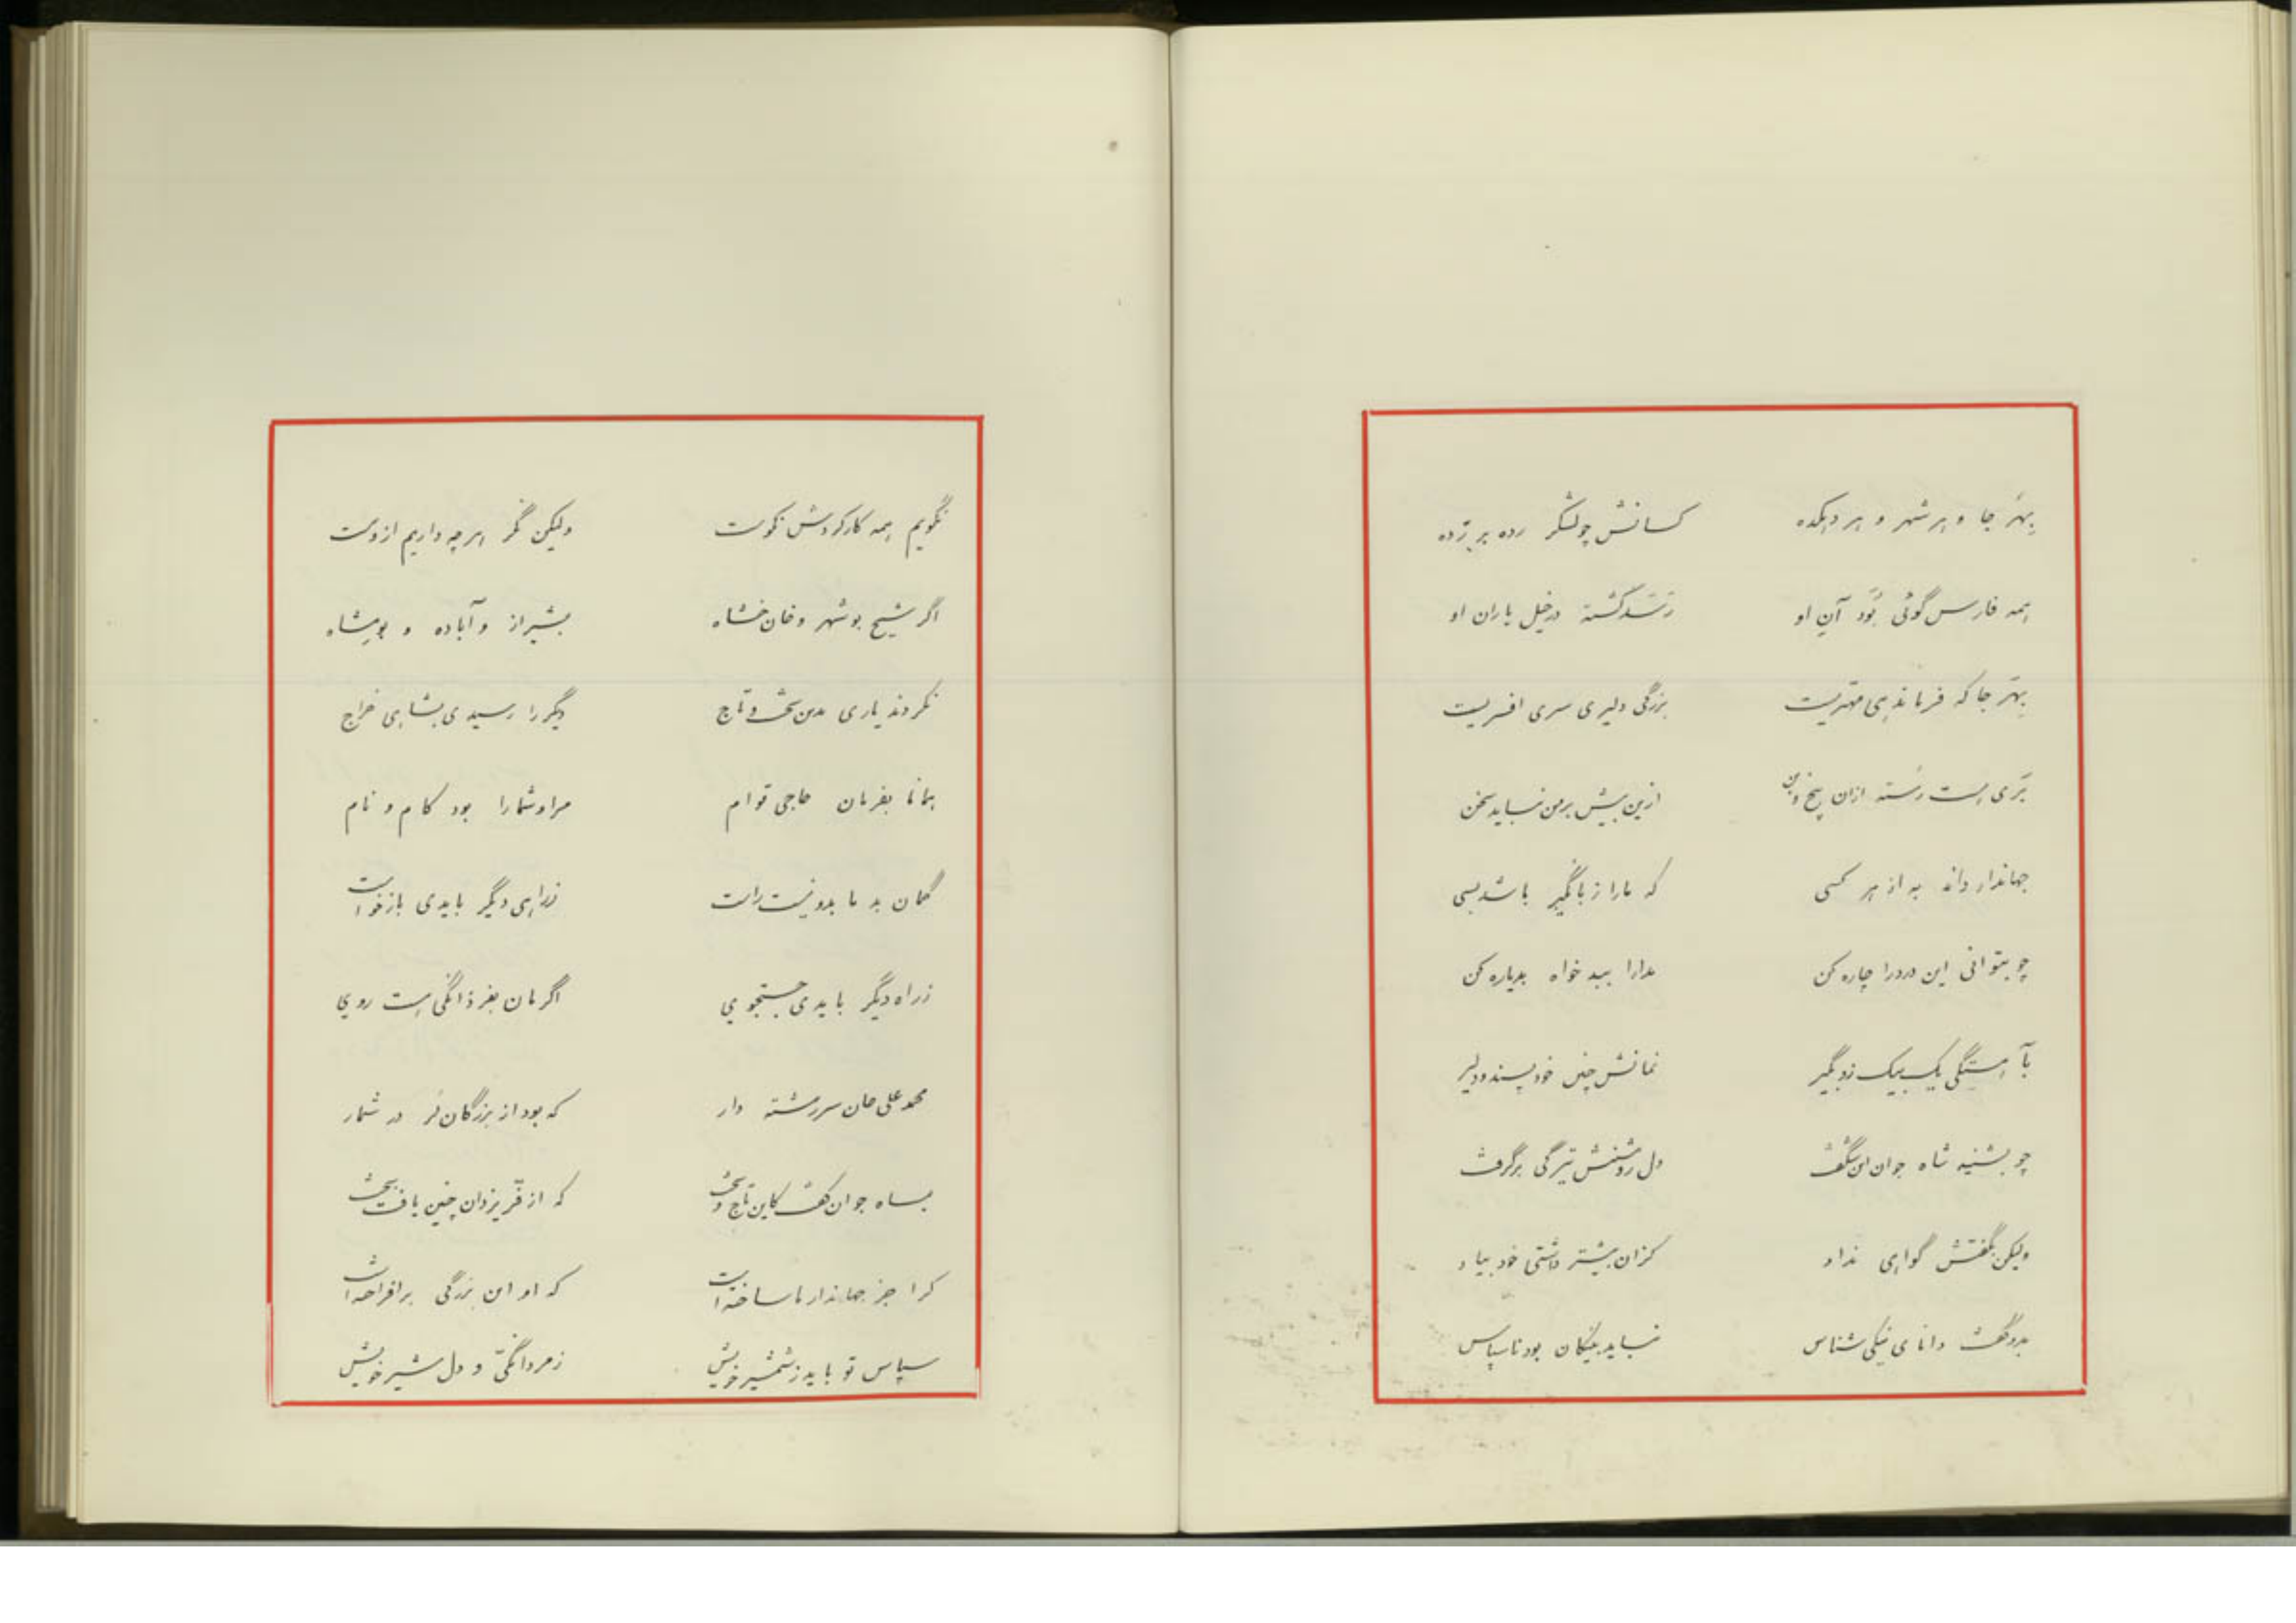 بهر جا و بهر شهر و هر دهکده کسانش چو لشکر رده بر زده
همه فارس گوئی بُوَد آنِ او رَسَد گشته در خیل یاران او
بهر جا که فرماندهی مهتریست بزرگی دلیری سری افسریست
بَری است رُسته ازان بیخ و بن ازین بیش بر من نباید سخن
جهاندار داند به از هر کسی که ما را زبانگیر باشد بسی
چو بتوانی این درد را چاره کن مدارا ببد خواه بدیاره کن
بآهستگی یک بیک زو بگیر نمانش چنین خودپسند و دلیر
چو بشنید شاه جوان این شگفت دل روشنش تیرگی برگرفت
ولیکن بگفتش گواهی نداد کزان بیشتر داشتی خود بیاد
بدو گفت دانای نیکی شناس نباید به نیکان بود ناسپاس
نگویم همه کار کردش نکوست ولیکن نگر هر چه داریم ازوست
اگر شیخ بوشهر و خان خشاه بشیراز و آباده و بومشاه
نکردند یاری بدین تخت و تاج دگر را رسیدی بشاهی خراج
همانا بفرمان حاجی قوام مرا و شما را بود کام و نام
گمان بد ما بدو نیست راست ز راهی دگر بایدی باز خواست
ز راه دیگر بایدی جستجوی اگرمان بفرزانگی است روی
محمد علی خان سررشته دار که بود از بزرگان در شمار
بشاه جوان گفت کاین تاج و تخت که از فرّ یزدان چنین یافت بخت
کرا جز جهاندار ما ساخته است که او این بزرگی برافراخته است
سپاس تو باید ز شمشیر خویش ز مردانگیّ و دل شیر خویش